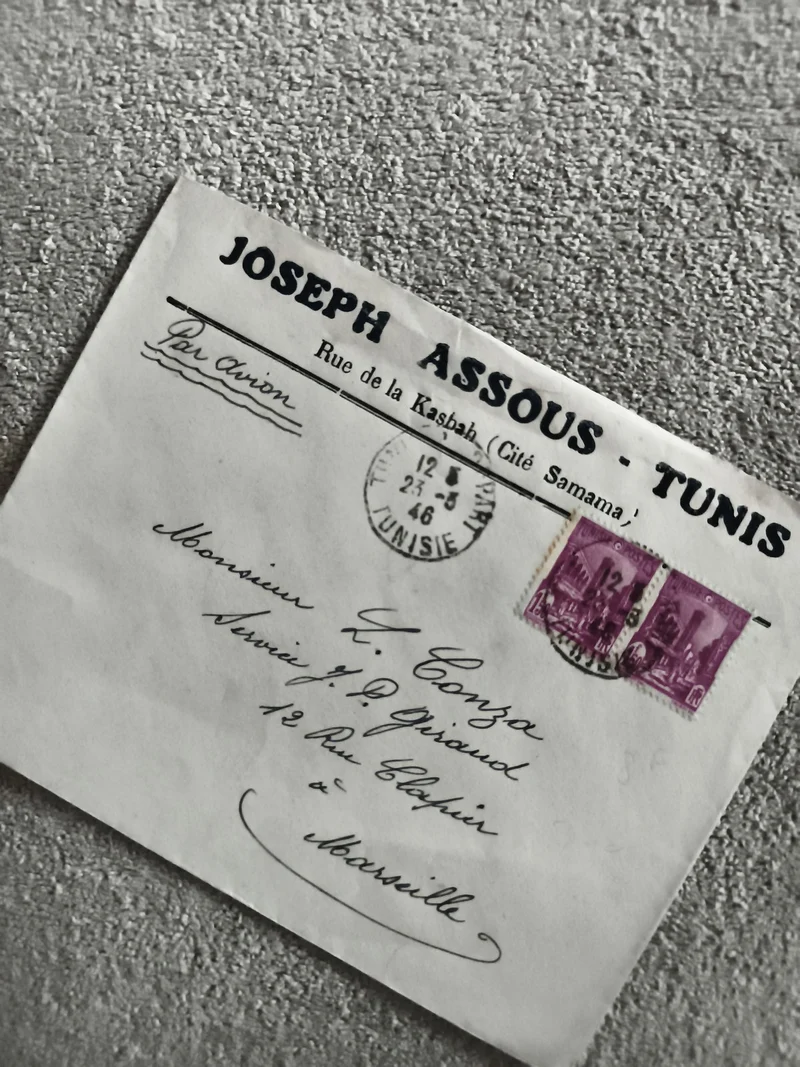 JOSEPH ASSOUS - TUNIS
Rue de la Kasbah (Cité Samama)
Par avion
12
23 -5
46
TUNISIE
Monsieur L. Conza
Service J. P. Giraud
12 Rue Clapier
à
Marseille